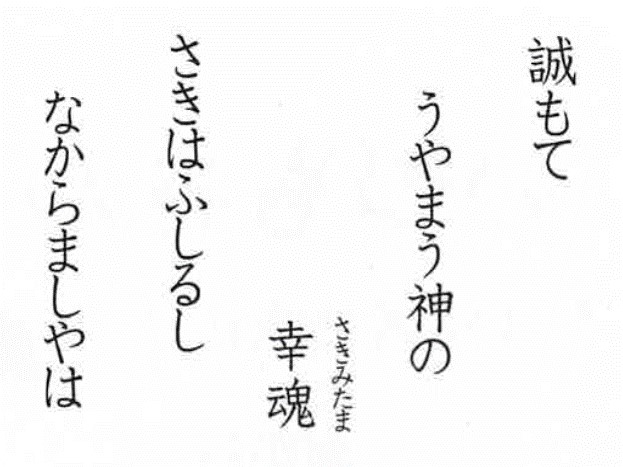 誠もて
うやまう神の
さきみたま
幸魂
さきはふしるし
なからましやは